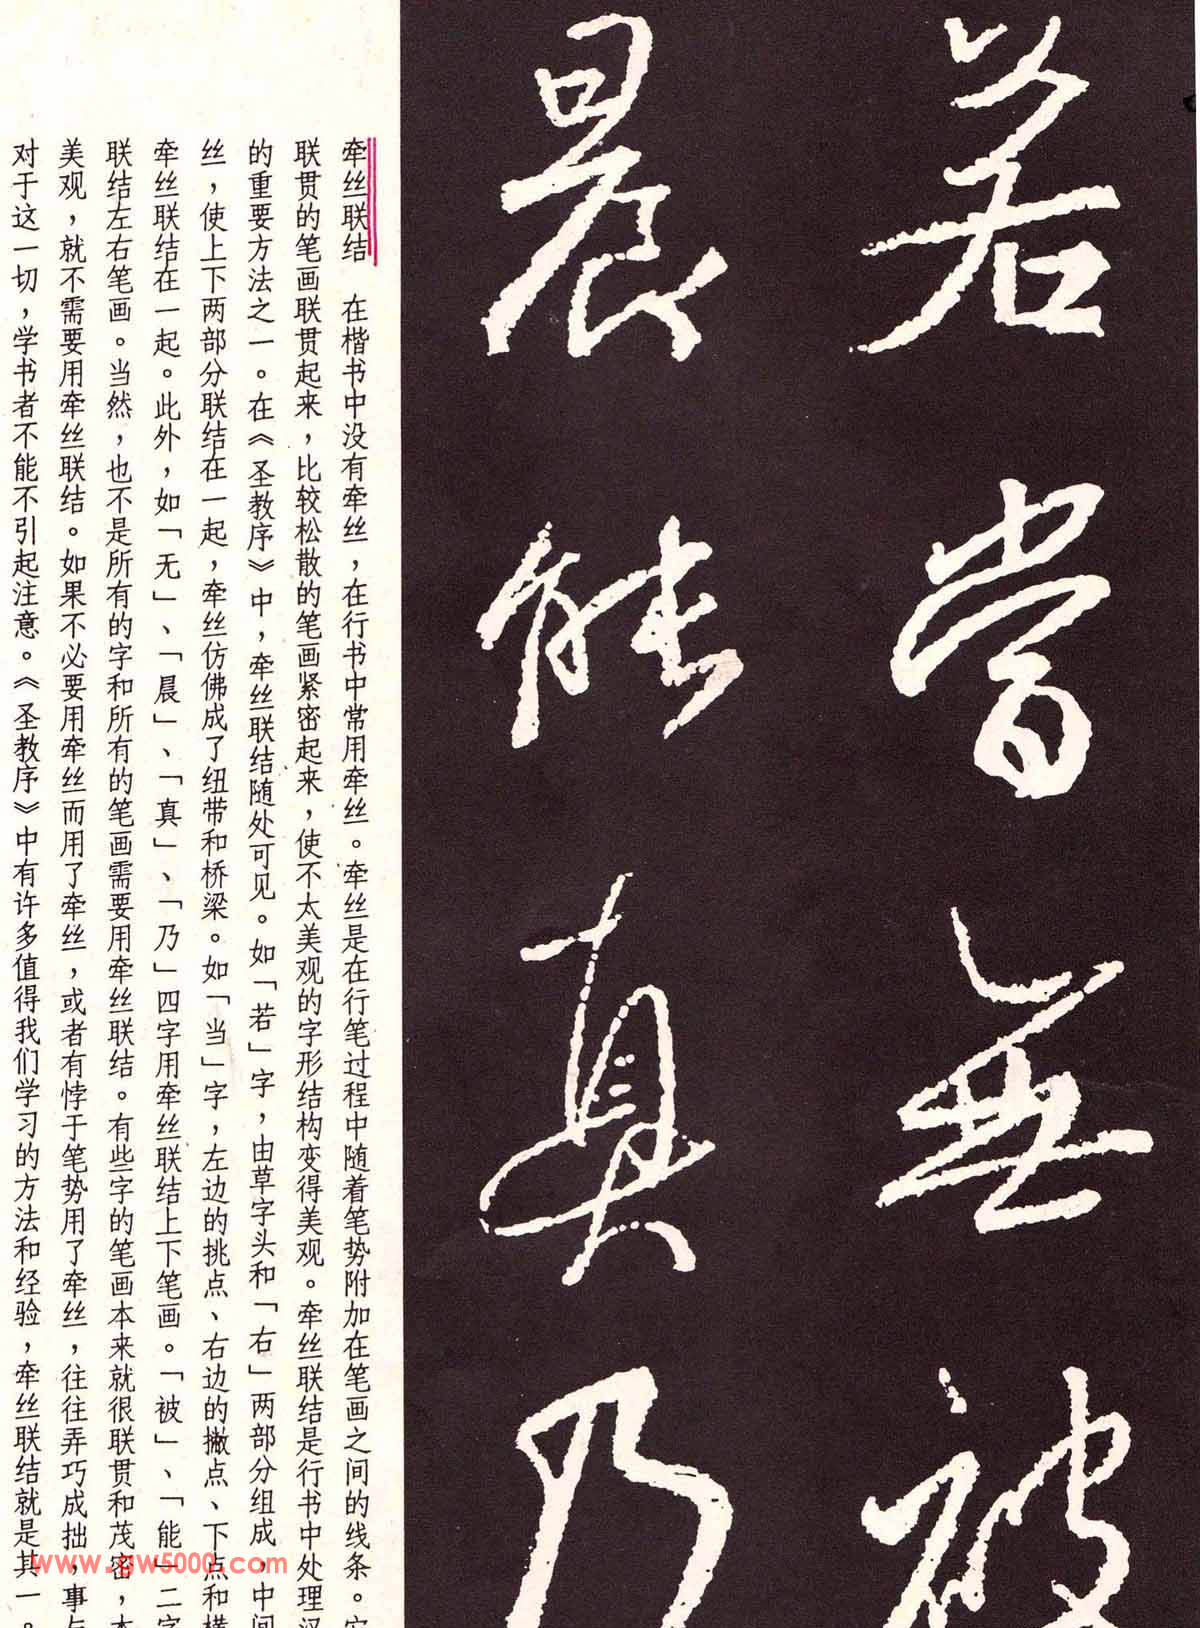 若当無被
晨能真乃
牵丝联结 在楷书中没有牵丝，在行书中常用牵丝。牵丝是在行笔过程中随着笔势附加在笔画之间的线条。
联贯的笔画联贯起来，比较松散的笔画紧密起来，使不太美观的字形结构变得美观。牵丝联结是行书中处理
的重要方法之一。在《圣教序》中，牵丝联结随处可见。如「若」字，由草字头和「右」两部分组成，中间
丝，使上下两部分联结在一起，牵丝仿佛成了纽带和桥梁。如「当」字，左边的挑点、右边的撇点、下点和横
牵丝联结在一起。此外，如「无」、「晨」、「真」、「乃」四字用牵丝联结上下笔画。「被」、「能」二字
联结左右笔画。当然，也不是所有的字和所有的笔画需要用牵丝联结。有些字的笔画本来就很联贯和茂密，本
美观，就不需要用牵丝联结。如果不必要用牵丝而用了牵丝，或者有悖于笔势用了牵丝，往往弄巧成拙，事与
对于这一切，学书者不能不引起注意。《圣教序》中有许多值得我们学习的方法和经验，牵丝联结就是其一。
www.gw5000.com